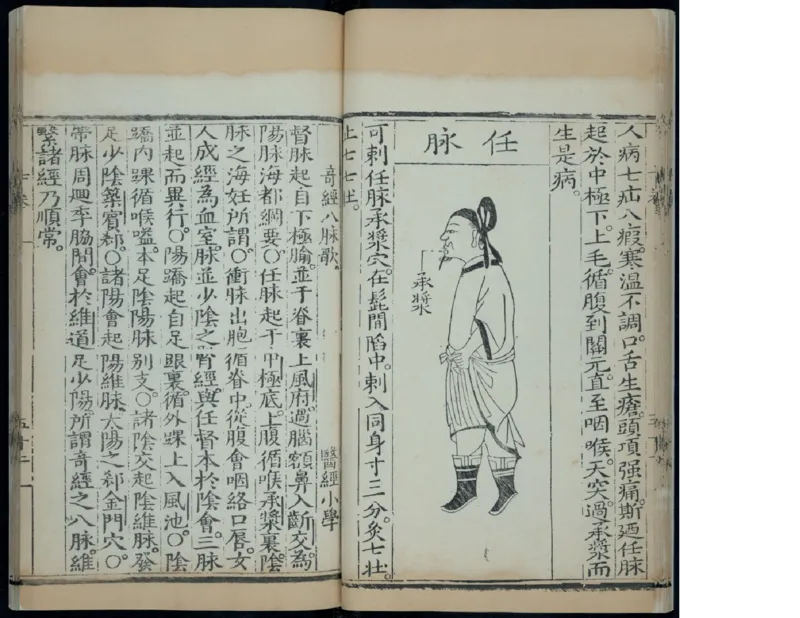 人病七疝八瘕。寒溫不調。口舌生瘡。頭項强痛。斯廼任脉
起於中極下。上毛。循腹到關元。直至咽喉。天突。過承漿而
生是病。
任脉
承漿
可刺任脉承漿穴。在髭間陷中。刺入同身寸三分。灸七壯。
上七七壯。
奇經八脉歌 醫經小學
督脉起自下極腧。並于脊裏上風府。過腦額鼻入齗交。為
陽脉海都綱要〇任脉起于中極底。上腹循喉承漿裏。陰
脉之海妊所謂〇衝脉出胞循脊中。從腹會咽絡口唇。女
人成經為血室。脉並少陰之腎經。與任督本於陰會。三脉
並起而異行〇陽蹻起自足跟裏。循外踝上入風池〇陰
蹻內踝循喉嗌。本足陰陽脉別支〇諸陰交起陰維脉。發
足少陰築賓郄〇諸陽會起陽維脉。太陽之郄金門穴〇
帶脉周廻季脇間。會於維道足少陽。所謂奇經之八脉。維
繫諸經乃順常。